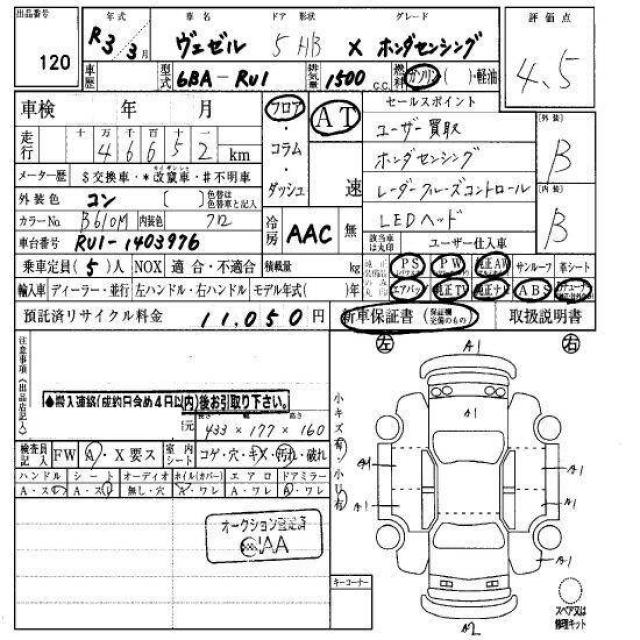 出品番号 120
年式 R3 3月
車名 ヴェゼル
ドア 形状 5 HB
グレード X ホンダセンシング
評価点 4.5
車歴
型式 6BA-RU1
排気量 1500 c.c.
燃料 ガソリン ( )・軽油
車検 年 月
フロア・コラム・ダッシュ
AT 速
セールスポイント
ユーザー買取
ホンダセンシング
レーダークルーズコントロール
LEDヘッド
ユーザー仕入車
該当車は丸印
(外装) B
(内装) B
走行 十 万 千 百 十 一
4 6 6 5 2 km
メーター歴 $交換車・*改竄車・#不明車
外装色 コン ( ) 色替は色替車と記入
カラーNo. B610M 内装色 クロ
車台番号 RU1-1403976
冷房 AAC 無
乗車定員(5)人 NOX 適合・不適合 積載量 kg
PS PW 純正AW サンルーフ 革シート
輸入車 ディーラー・並行 左ハンドル・右ハンドル モデル年式( )年
エアバッグ 純正TV 純正ナビ ABS
預託済リサイクル料金 11,050円
新車保証書(保証欄完備のもの) 取扱説明書
左 右
注意事項(出品店記入)
●搬入連絡(成約日含め4日以内)後お引取り下さい。
長さ 幅 高さ
元 433 × 177 × 160
検査員記入 FW A・X要ス 室内シート コゲ・穴・キズ・汚れ・破れ
ハンドル シート オーディオ ホイル(カバー) エアロ ドアミラー
A・スレ A・スレ 無し・穴 A・ワレ A・ワレ A・ワレ
小キズ有・小凹有
オークション認定済
CIAA
キーコーナー
A1
A1
A1 A1
A1 A1
A1
A2
スペア又は修理キット